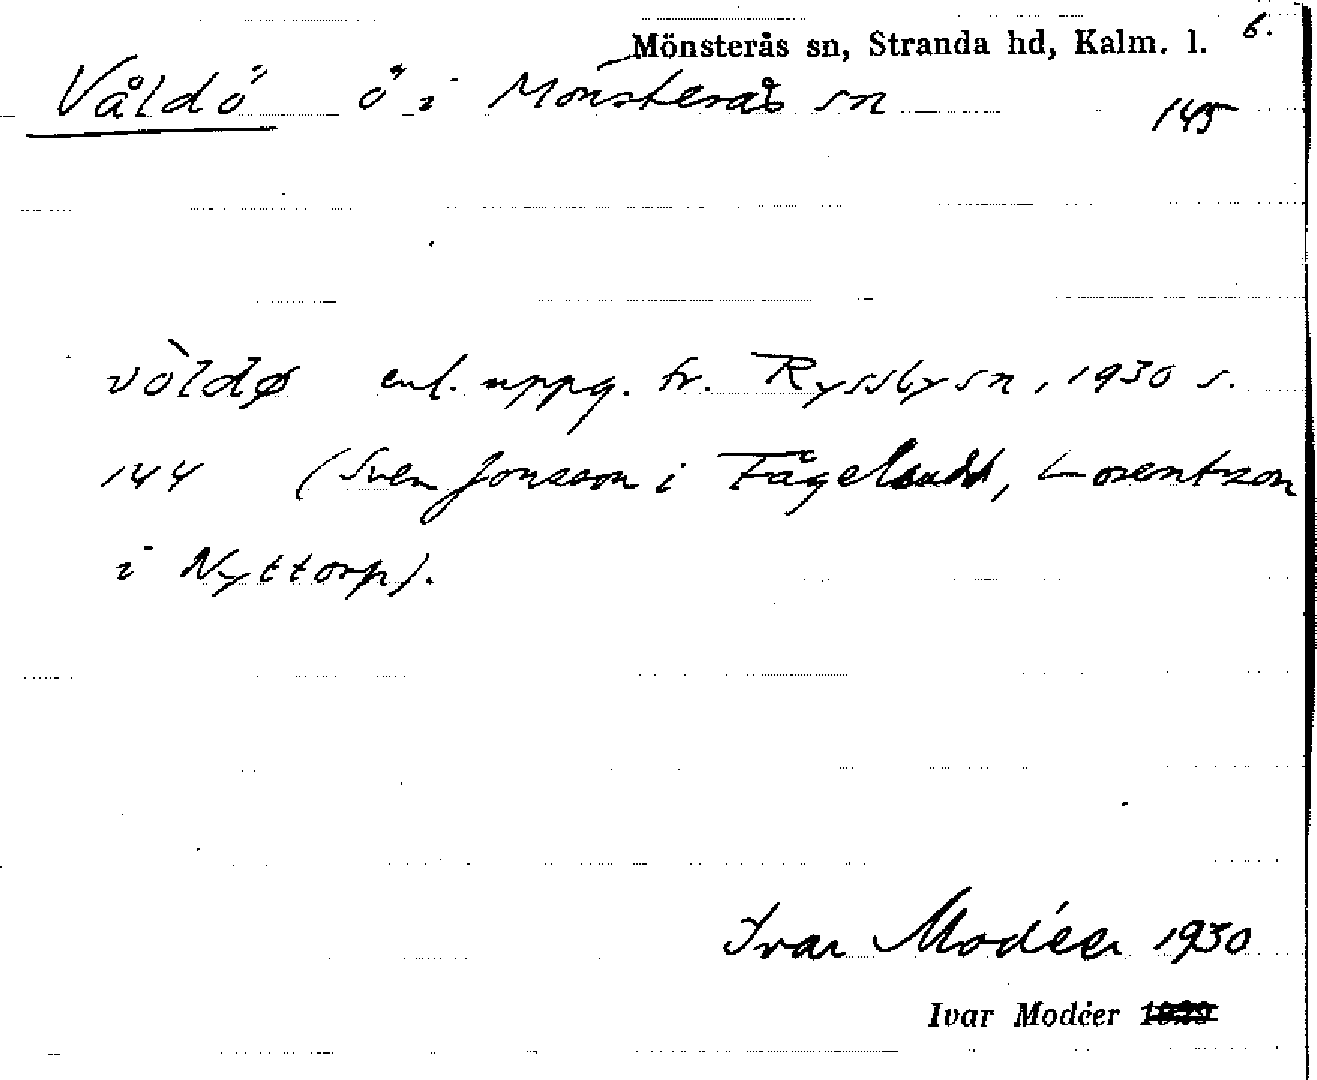 Mönsterås sn, Stranda hd, Kalm. l. 6.
Våldö ö i Mönsterås sn 145
vòldø enl. uppg. fr. Ryssby sn, 1930 s.
144 (Sven Jonsson i Fågelsudd, Lorentzon
i Nyttorp).
Ivar Modéer 1930
Ivar Modéer